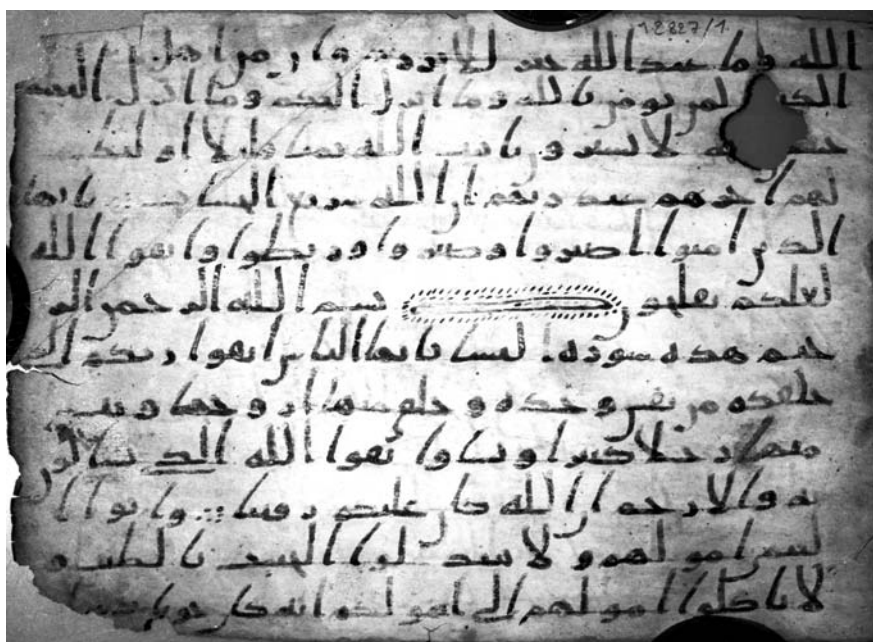 12827/1
الله وما عند الله خير للابرار وان من اهل
الكتب لمن يومن بالله وما انزل اليكم وما انزل اليهم
لله لا يشترون بايت الله ثمنا قليلا اولئك
لهم اجرهم عند ربهم ان الله سريع الحساب يايها
الذين امنوا اصبروا وصبروا وربطوا واتقوا الله
لعلكم تفلحون بسم الله الرحمن الر
حيم هذه سورة لنسا يايها الناس اتقوا ربكم الذي
خلقكم من نفس وحده وخلق منها زوجها وبث
منهما رجلا كثيرا ونسا واتقوا الله الذي تسالون
به والارحم ان الله كان عليكم رقيبا واتوا ا
ليتمى امولهم ولا تتبدلوا الخبيث بالطيب و
لا تاكلوا امولهم الى امولكم انه كان حوبا كبيرا